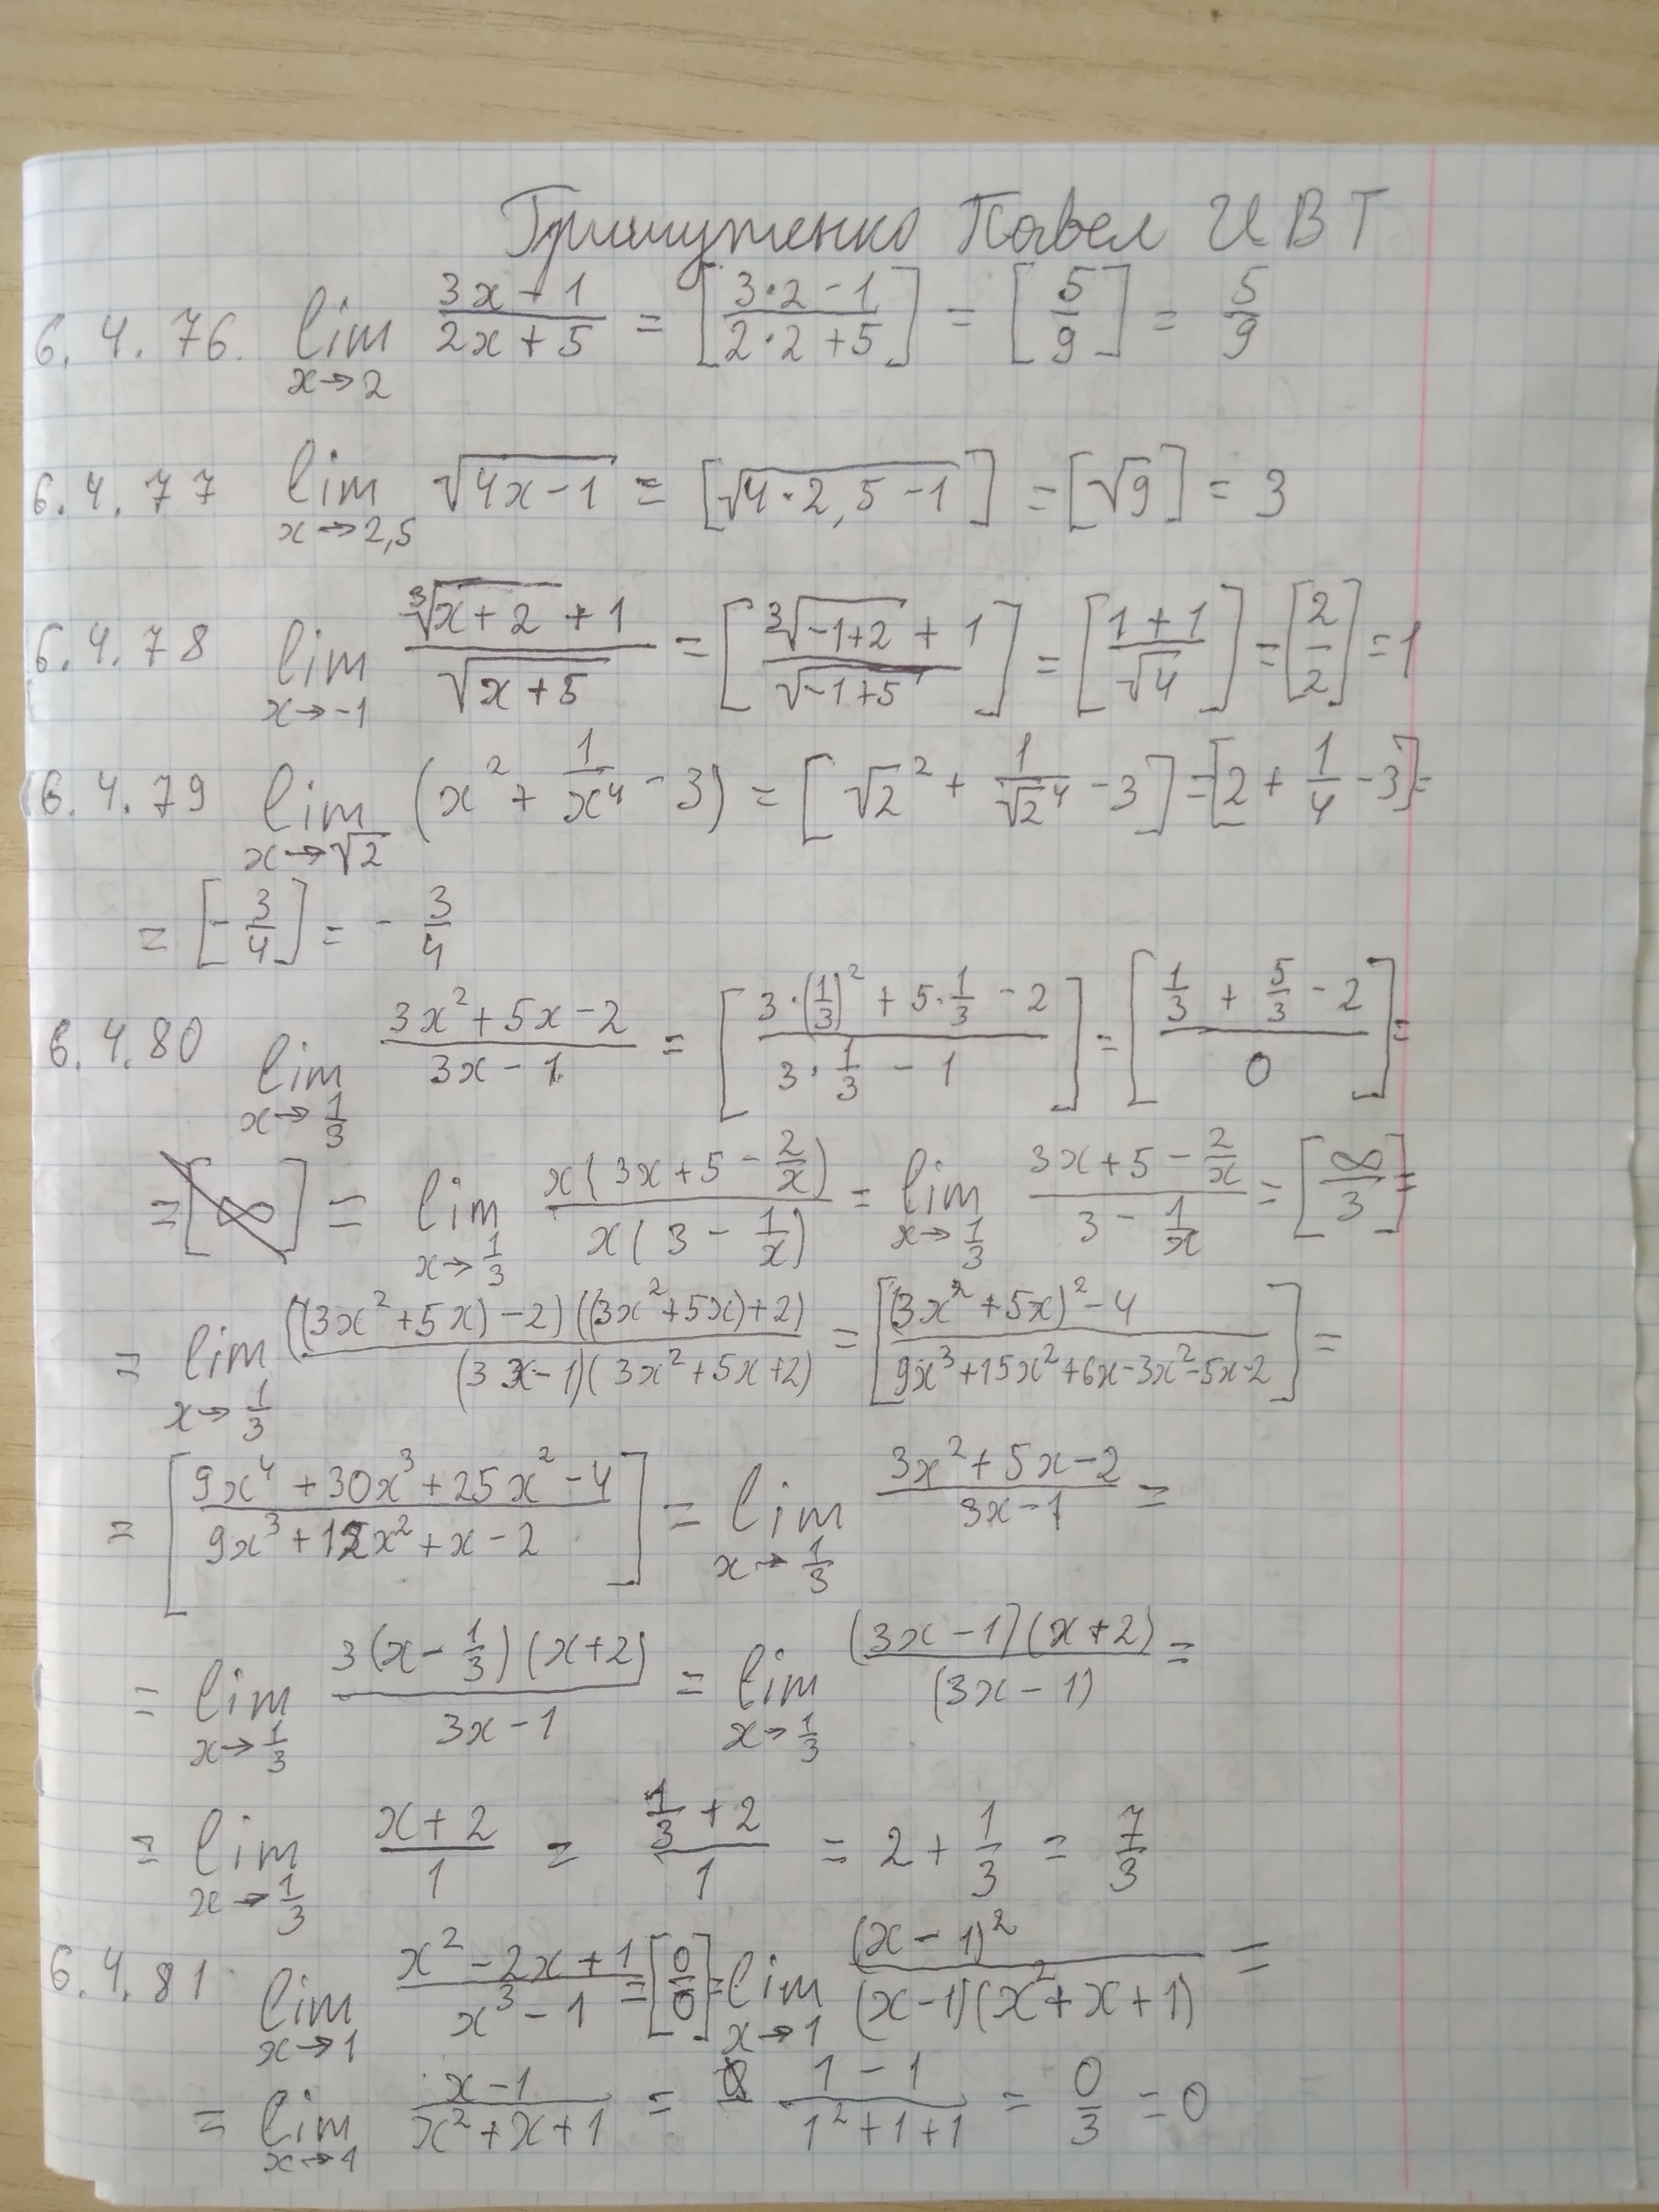 Гришутенко Павел ИВТ
6.4.76. lim x→2 (3x-1)/(2x+5) = [(3·2-1)/(2·2+5)] = [5/9] = 5/9
6.4.77 lim x→2,5 √(4x-1) = [√(4·2,5-1)] = [√9] = 3
6.4.78 lim x→-1 (∛(x+2)+1)/√(x+5) = [(∛(-1+2)+1)/√(-1+5)] = [(1+1)/√4] = [2/2] = 1
6.4.79 lim x→√2 (x²+1/x⁴-3) = [√2²+1/√2⁴-3] = [2+1/4-3] =
= [-3/4] = -3/4
6.4.80 lim x→1/3 (3x²+5x-2)/(3x-1) = [(3·(1/3)²+5·1/3-2)/(3·1/3-1)] = [(1/3+5/3-2)/0] =
= [∞] = lim x→1/3 x(3x+5-2/x)/x(3-1/x) = lim x→1/3 (3x+5-2/x)/(3-1/x) = [∞/3] =
= lim x→1/3 ((3x²+5x)-2)((3x²+5x)+2)/(3x-1)(3x²+5x+2) = [((3x²+5x)²-4)/(9x³+15x²+6x-3x²-5x-2)] =
= [(9x⁴+30x³+25x²-4)/(9x³+12x²+x-2)] = lim x→1/3 (3x²+5x-2)/(3x-1) =
= lim x→1/3 3(x-1/3)(x+2)/(3x-1) = lim x→1/3 (3x-1)(x+2)/(3x-1) =
= lim x→1/3 (x+2)/1 = (1/3+2)/1 = 2+1/3 = 7/3
6.4.81 lim x→1 (x²-2x+1)/(x³-1) = [0/0] = lim x→1 (x-1)²/(x-1)(x²+x+1) =
= lim x→1 (x-1)/(x²+x+1) = (1-1)/(1²+1+1) = 0/3 = 0